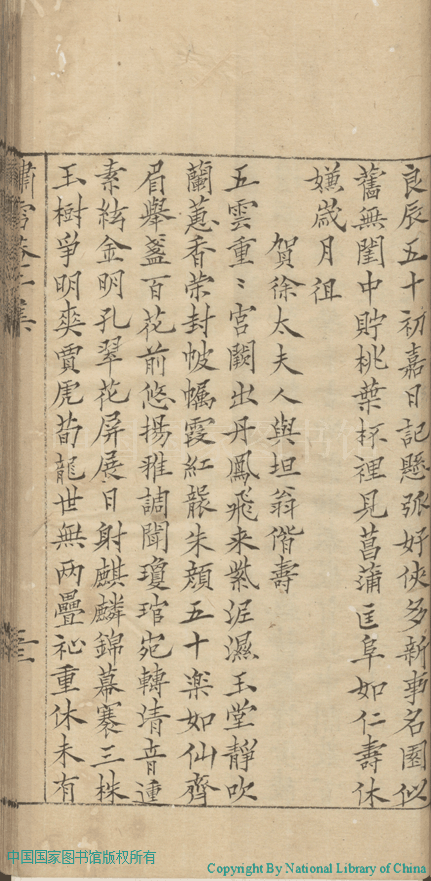 良辰五十初嘉日記懸弧好俠多新事名園似
舊無閨中貯桃葉杯裡見菖蒲匡阜如仁壽休
嫌歲月徂
賀徐太夫人與坦翁偕壽
五雲重〻宮闕出丹鳳飛来紫泥濕玉堂靜吹
蘭蕙香榮封帔幰霞紅襲朱顔五十楽如仙齊
眉舉盞百花前悠揚雅調聞瓊琯宛轉清音連
素絃金明孔翠花屏展日射麒麟錦幕褰三株
玉樹爭明奕賈虎荀龍世無兩疊祉重休未有
中国国家图书馆版权所有
Copyright By National Library of China